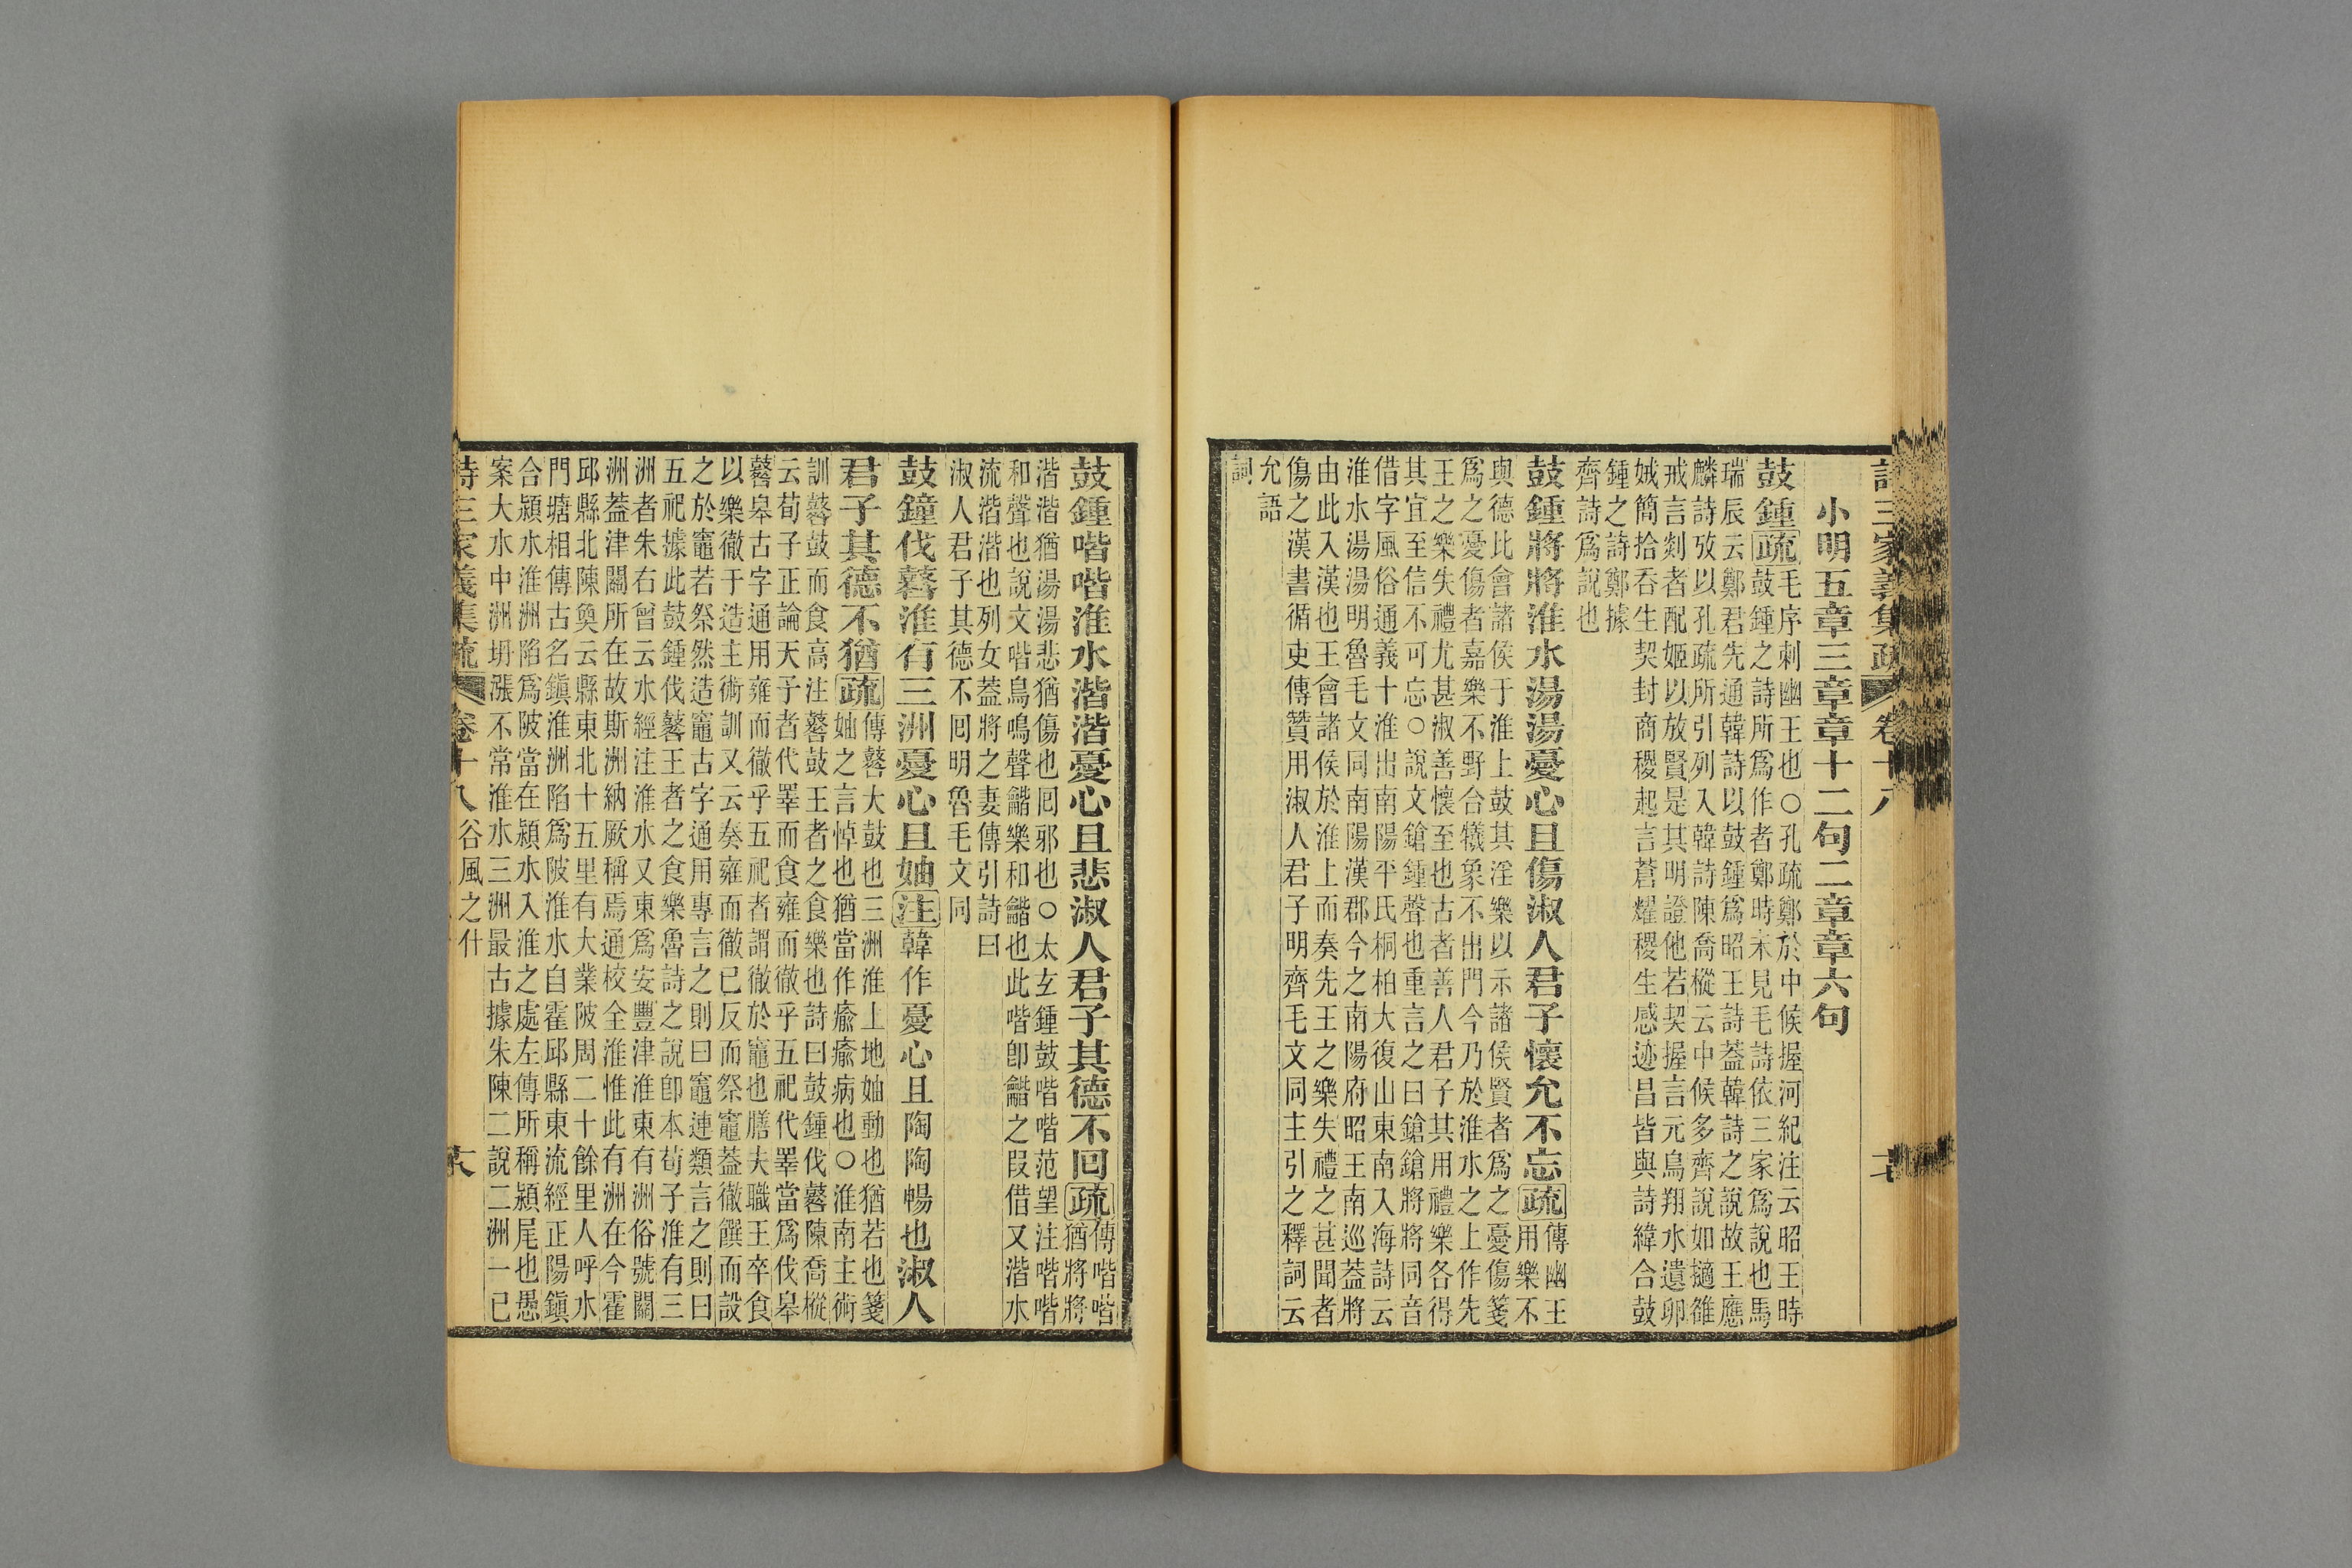 小明五章三章章十二句二章章六句
鼓鍾疏毛序刺幽王也○孔疏鄭於中候握河紀注云昭王時
鼓鍾之詩所爲作者鄭時未見毛詩依三家爲說也馬
瑞辰云鄭君先通韓詩以鼓鍾爲昭王詩蓋韓詩之說故王應
麟詩攷以孔疏所引列入韓詩陳喬樅云中候多齊說如擿雒
戒言剡者配姬以放賢是其明證他若契握言元鳥翔水遺卵
娀簡拾吞生契封商稷起言蒼耀稷生感迹昌皆與詩緯合鼓
鍾之詩鄭據
齊詩爲說也
鼓鍾將將淮水湯湯憂心且傷淑人君子懷允不忘疏傳幽王
用樂不
與德比會諸侯于淮上鼓其淫樂以示諸侯賢者爲之憂傷箋
爲之憂傷者嘉樂不野合犧象不出門今乃於淮水之上作先
王之樂失禮尤甚淑善懷至也古者善人君子其用禮樂各得
其宜至信不可忘○說文鎗鍾聲也重言之曰鎗鎗將將同音
借字風俗通義十淮出南陽平氏桐柏大復山東南入海詩云
淮水湯湯明魯毛文同南陽漢郡今之南陽府昭王南巡蓋將
由此入漢也王會諸侯於淮上而奏先王之樂失禮之甚聞者
傷之漢書循吏傳贊用淑人君子明齊毛文同主引之釋詞云
允語
詞
鼓鍾喈喈淮水湝湝憂心且悲淑人君子其德不回疏傳喈喈
猶將將
湝湝猶湯湯悲猶傷也囘邪也○太玄鍾鼓喈喈范望注喈喈
和聲也說文喈鳥鳴聲龤樂和龤也此喈卽龤之叚借又湝水
流湝湝也列女蓋將之妻傳引詩曰
淑人君子其德不囘明魯毛文同
鼓鐘伐鼛淮有三洲憂心且妯注韓作憂心且陶陶暢也淑人
君子其德不猶疏傳鼛大鼓也三洲淮上地妯動也猶若也箋
妯之言悼也猶當作瘉瘉病也○淮南主術
訓鼛鼓而食高注鼛鼓王者之食樂也詩曰鼓鍾伐鼛陳喬樅
云荀子正論天子者代睪而食雍而徹乎五祀代睪當爲伐皋
鼛皋古字通用雍而徹乎五祀者謂徹於竈也膳夫職王卒食
以樂徹于造主術訓又云奏雍而徹已反而祭竈蓋徹饌而設
之於竈若祭然造竈古字通用專言之則曰竈連類言之則曰
五祀據此鼓鍾伐鼛王者之食樂魯詩之說卽本荀子淮有三
洲者朱右曾云水經注淮水又東爲安豐津淮東有洲俗號關
洲蓋津關所在故斯洲納厥稱焉通校全淮惟此有洲在今霍
邱縣北陳奐云縣東北十五里有大業陂周二十餘里人呼水
門塘相傳古名鎭淮洲陷爲陂淮水自霍邱縣東流經正陽鎭
合潁水淮洲陷爲陂當在潁水入淮之處左傳所稱潁尾也愚
案大水中洲坍漲不常淮水三洲最古據朱陳二說二洲一已
詩三家義集疏 卷十八谷風之什